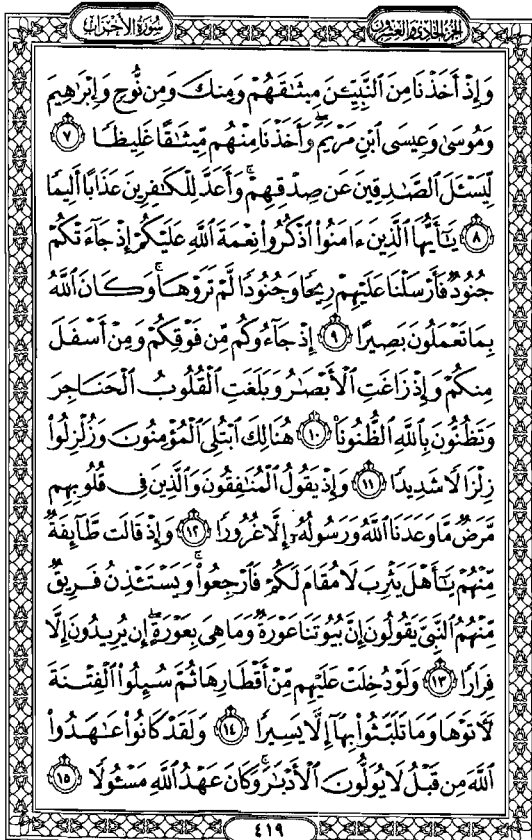 سُورَةُ الأَحْزَابِ
الجُزْءُ الحَادِي وَالعِشْرُونَ
وَإِذْ أَخَذْنَا مِنَ النَّبِيِّـۧنَ مِيثَٰقَهُمْ وَمِنكَ وَمِن نُّوحٍ وَإِبْرَٰهِيمَ
وَمُوسَىٰ وَعِيسَى ٱبْنِ مَرْيَمَ ۖ وَأَخَذْنَا مِنْهُم مِّيثَٰقًا غَلِيظًا ٧
لِّيَسْـَٔلَ ٱلصَّٰدِقِينَ عَن صِدْقِهِمْ ۚ وَأَعَدَّ لِلْكَٰفِرِينَ عَذَابًا أَلِيمًا
٨ يَٰٓأَيُّهَا ٱلَّذِينَ ءَامَنُوا۟ ٱذْكُرُوا۟ نِعْمَةَ ٱللَّهِ عَلَيْكُمْ إِذْ جَآءَتْكُمْ
جُنُودٌ فَأَرْسَلْنَا عَلَيْهِمْ رِيحًا وَجُنُودًا لَّمْ تَرَوْهَا ۚ وَكَانَ ٱللَّهُ
بِمَا تَعْمَلُونَ بَصِيرًا ٩ إِذْ جَآءُوكُم مِّن فَوْقِكُمْ وَمِنْ أَسْفَلَ
مِنكُمْ وَإِذْ زَاغَتِ ٱلْأَبْصَٰرُ وَبَلَغَتِ ٱلْقُلُوبُ ٱلْحَنَاجِرَ
وَتَظُنُّونَ بِٱللَّهِ ٱلظُّنُونَا۠ ١٠ هُنَالِكَ ٱبْتُلِىَ ٱلْمُؤْمِنُونَ وَزُلْزِلُوا۟
زِلْزَالًا شَدِيدًا ١١ وَإِذْ يَقُولُ ٱلْمُنَٰفِقُونَ وَٱلَّذِينَ فِى قُلُوبِهِم
مَّرَضٌ مَّا وَعَدَنَا ٱللَّهُ وَرَسُولُهُۥٓ إِلَّا غُرُورًا ١٢ وَإِذْ قَالَت طَّآئِفَةٌ
مِّنْهُمْ يَٰٓأَهْلَ يَثْرِبَ لَا مُقَامَ لَكُمْ فَٱرْجِعُوا۟ ۚ وَيَسْتَـْٔذِنُ فَرِيقٌ
مِّنْهُمُ ٱلنَّبِىَّ يَقُولُونَ إِنَّ بُيُوتَنَا عَوْرَةٌ وَمَا هِىَ بِعَوْرَةٍ ۖ إِن يُرِيدُونَ إِلَّا
فِرَارًا ١٣ وَلَوْ دُخِلَتْ عَلَيْهِم مِّنْ أَقْطَارِهَا ثُمَّ سُئِلُوا۟ ٱلْفِتْنَةَ
لَءَاتَوْهَا وَمَا تَلَبَّثُوا۟ بِهَآ إِلَّا يَسِيرًا ١٤ وَلَقَدْ كَانُوا۟ عَٰهَدُوا۟
ٱللَّهَ مِن قَبْلُ لَا يُوَلُّونَ ٱلْأَدْبَٰرَ ۚ وَكَانَ عَهْدُ ٱللَّهِ مَسْـُٔولًا ١٥
٤١٩